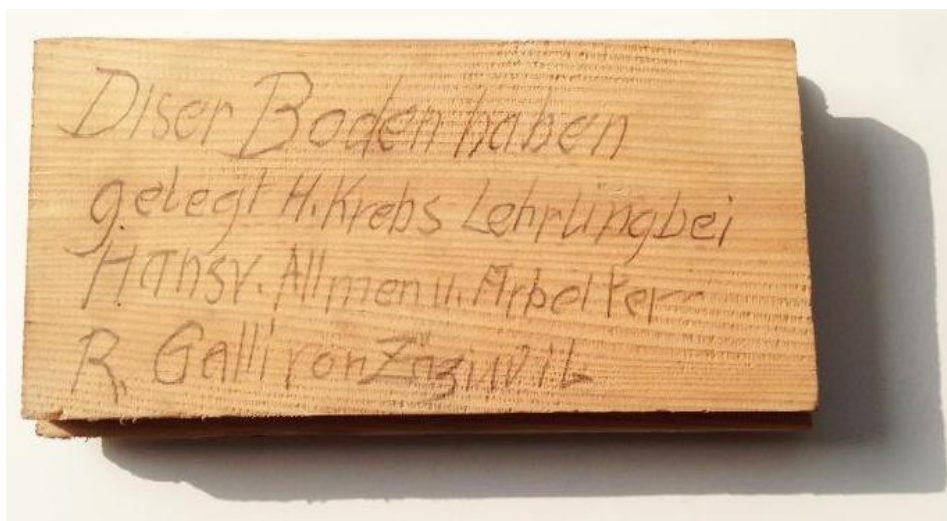 Diser Boden haben
gelegt H. Krebs Lehrling bei
Hans v. Allmen u. Arbeiter
R. Galli von Zäzuvil